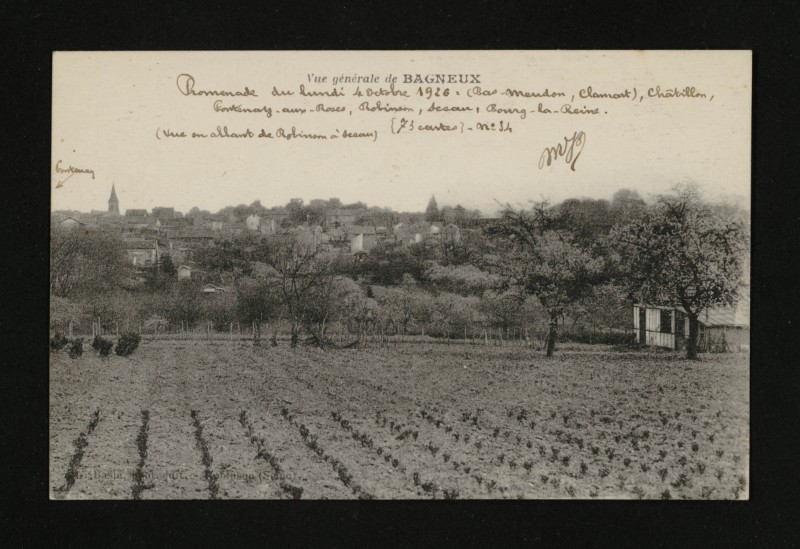 Vue générale de BAGNEUX
Promenade du lundi 4 octobre 1926 : (Bas-Meudon, Clamart), Châtillon,
Fontenay-aux-Roses, Robinson, Sceau, Bourg-la-Reine.
(Vue en allant de Robinson à Sceau) (73 cartes) - No 34
Fontenay